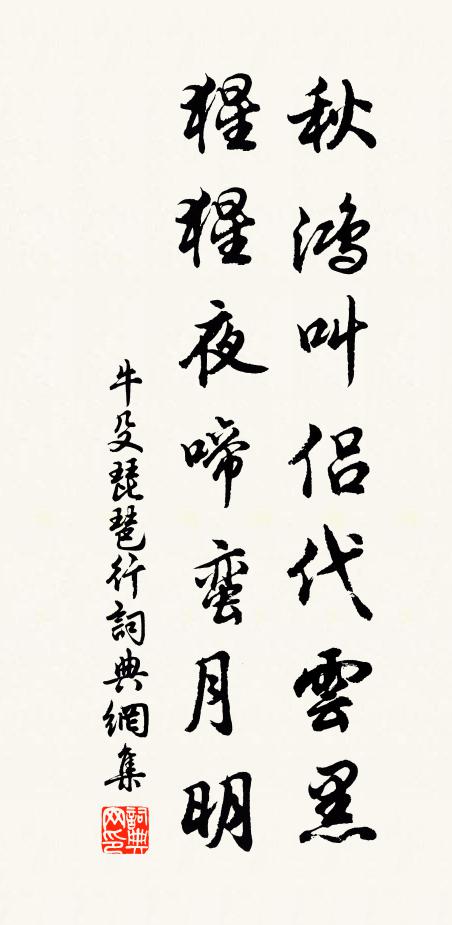 秋鴻叫侶代雲黑
猩猩夜啼蛮月明
牛殳琵琶行詞典網集
詞典网印